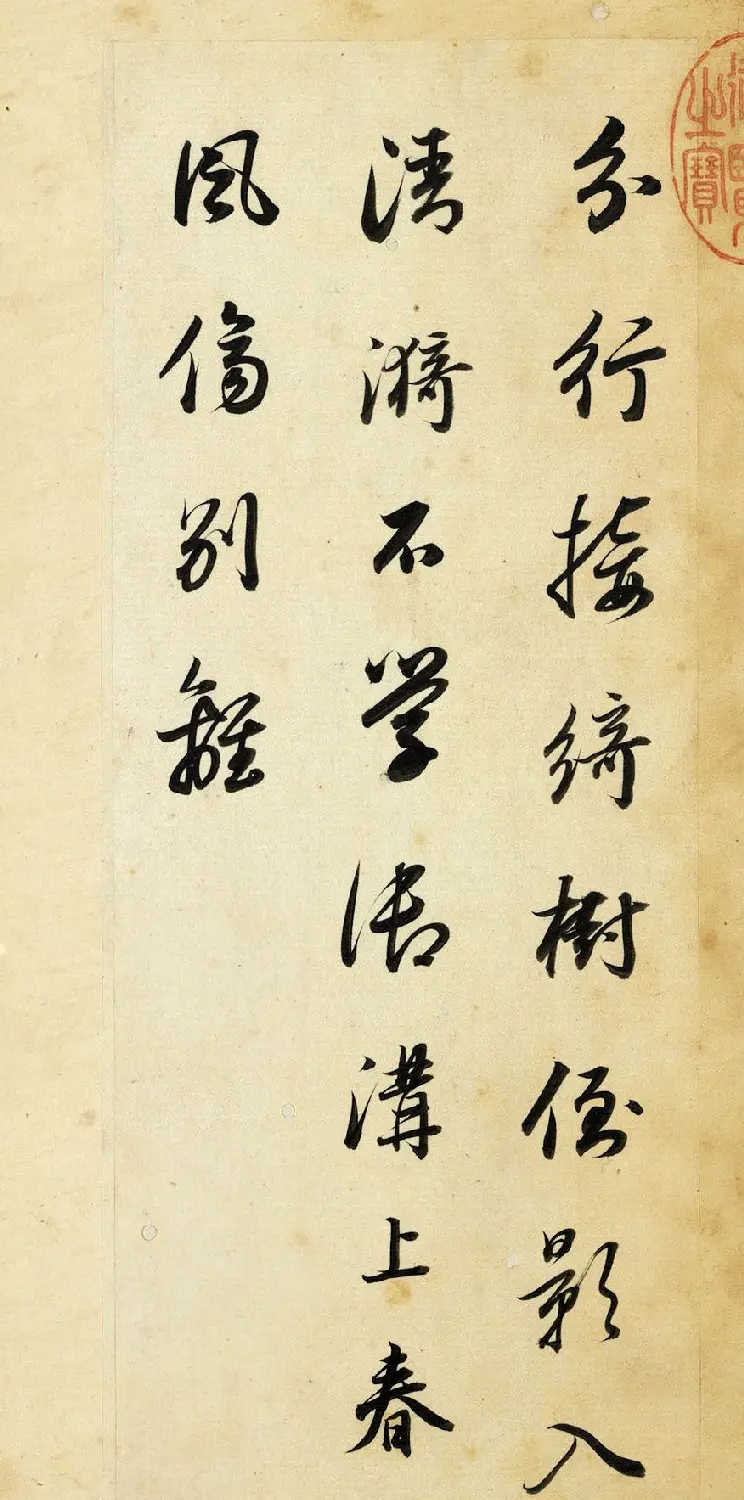 之寶
分行接綺樹倒影入
清漪不學御溝上春
風傷別離